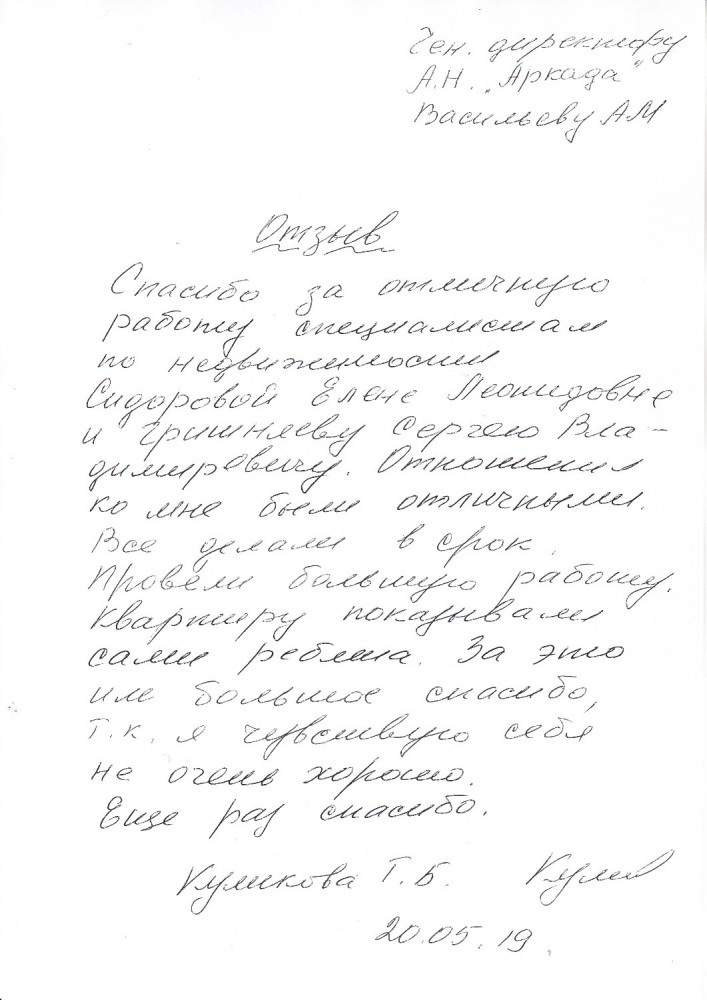 Ген. директору
А.Н. „Аркада"
Васильеву АМ
Отзыв
Спасибо за отличную
работу специалистам
по недвижимости
Сидоровой Елене Леонидовне
и Гришняеву Сергею Вла-
димировичу. Отношения
ко мне были отличными.
Все делали в срок.
Провели большую работу.
Квартиру показывали
сами ребята. За это
им большое спасибо,
т.к. я чувствую себя
не очень хорошо.
Еще раз спасибо.
Куликова Т.Б.
20.05.19